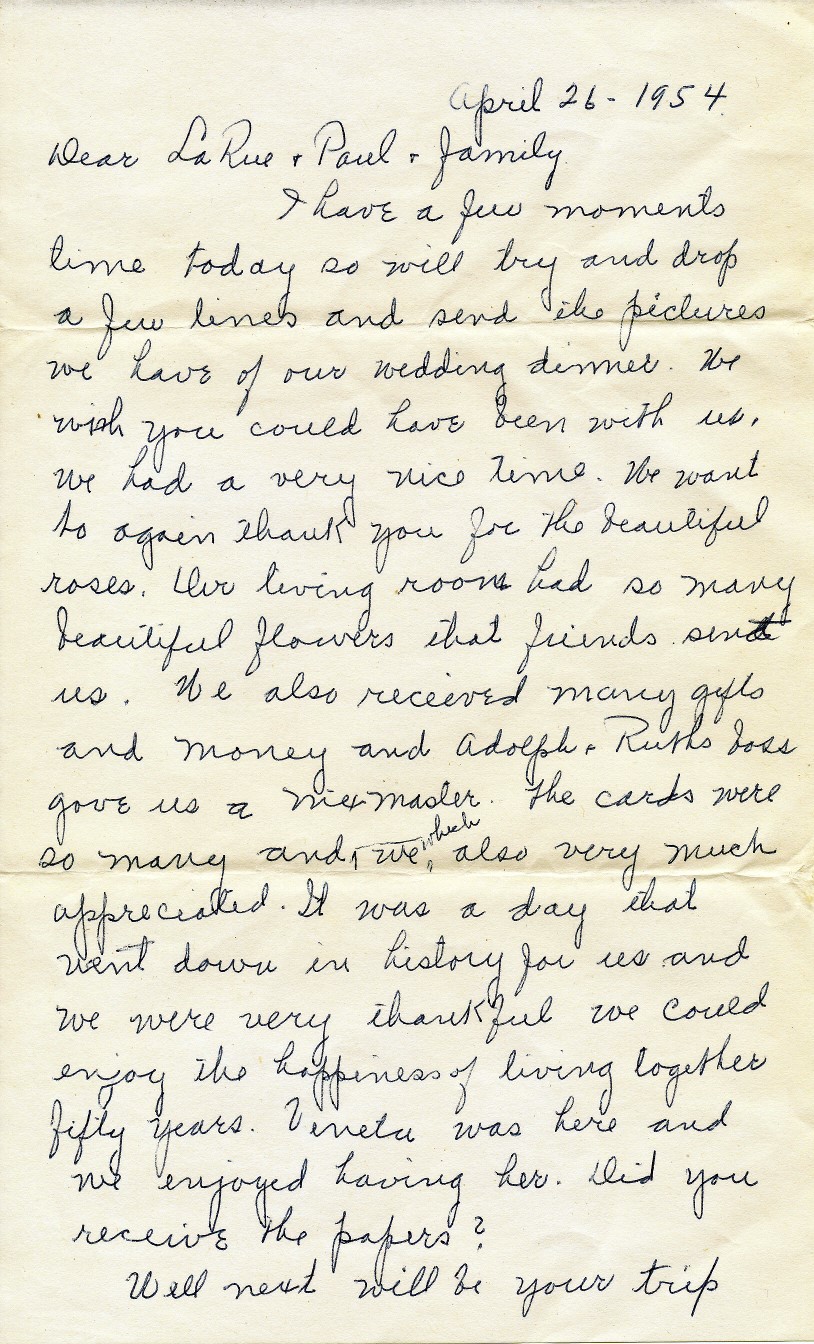 April 26 - 1954
Dear LaRue + Paul + family
I have a few moments
time today so will try and drop
a few lines and send the pictures
we have of our wedding dinner. We
wish you could have been with us.
We had a very nice time. We want
to again thank you for the beautiful
roses. Our living room had so many
beautiful flowers that friends sent
us. We also received many gifts
and money and Adolph + Ruths boss
gove us a mixmaster. The cards were
which
so many and we also very much
appreciated. It was a day that
went down in history for us and
we were very thankful we could
enjoy the happiness of living together
fifty years. Veneta was here and
we enjoyed having her. Did you
receive the papers?
Well next will be your trip